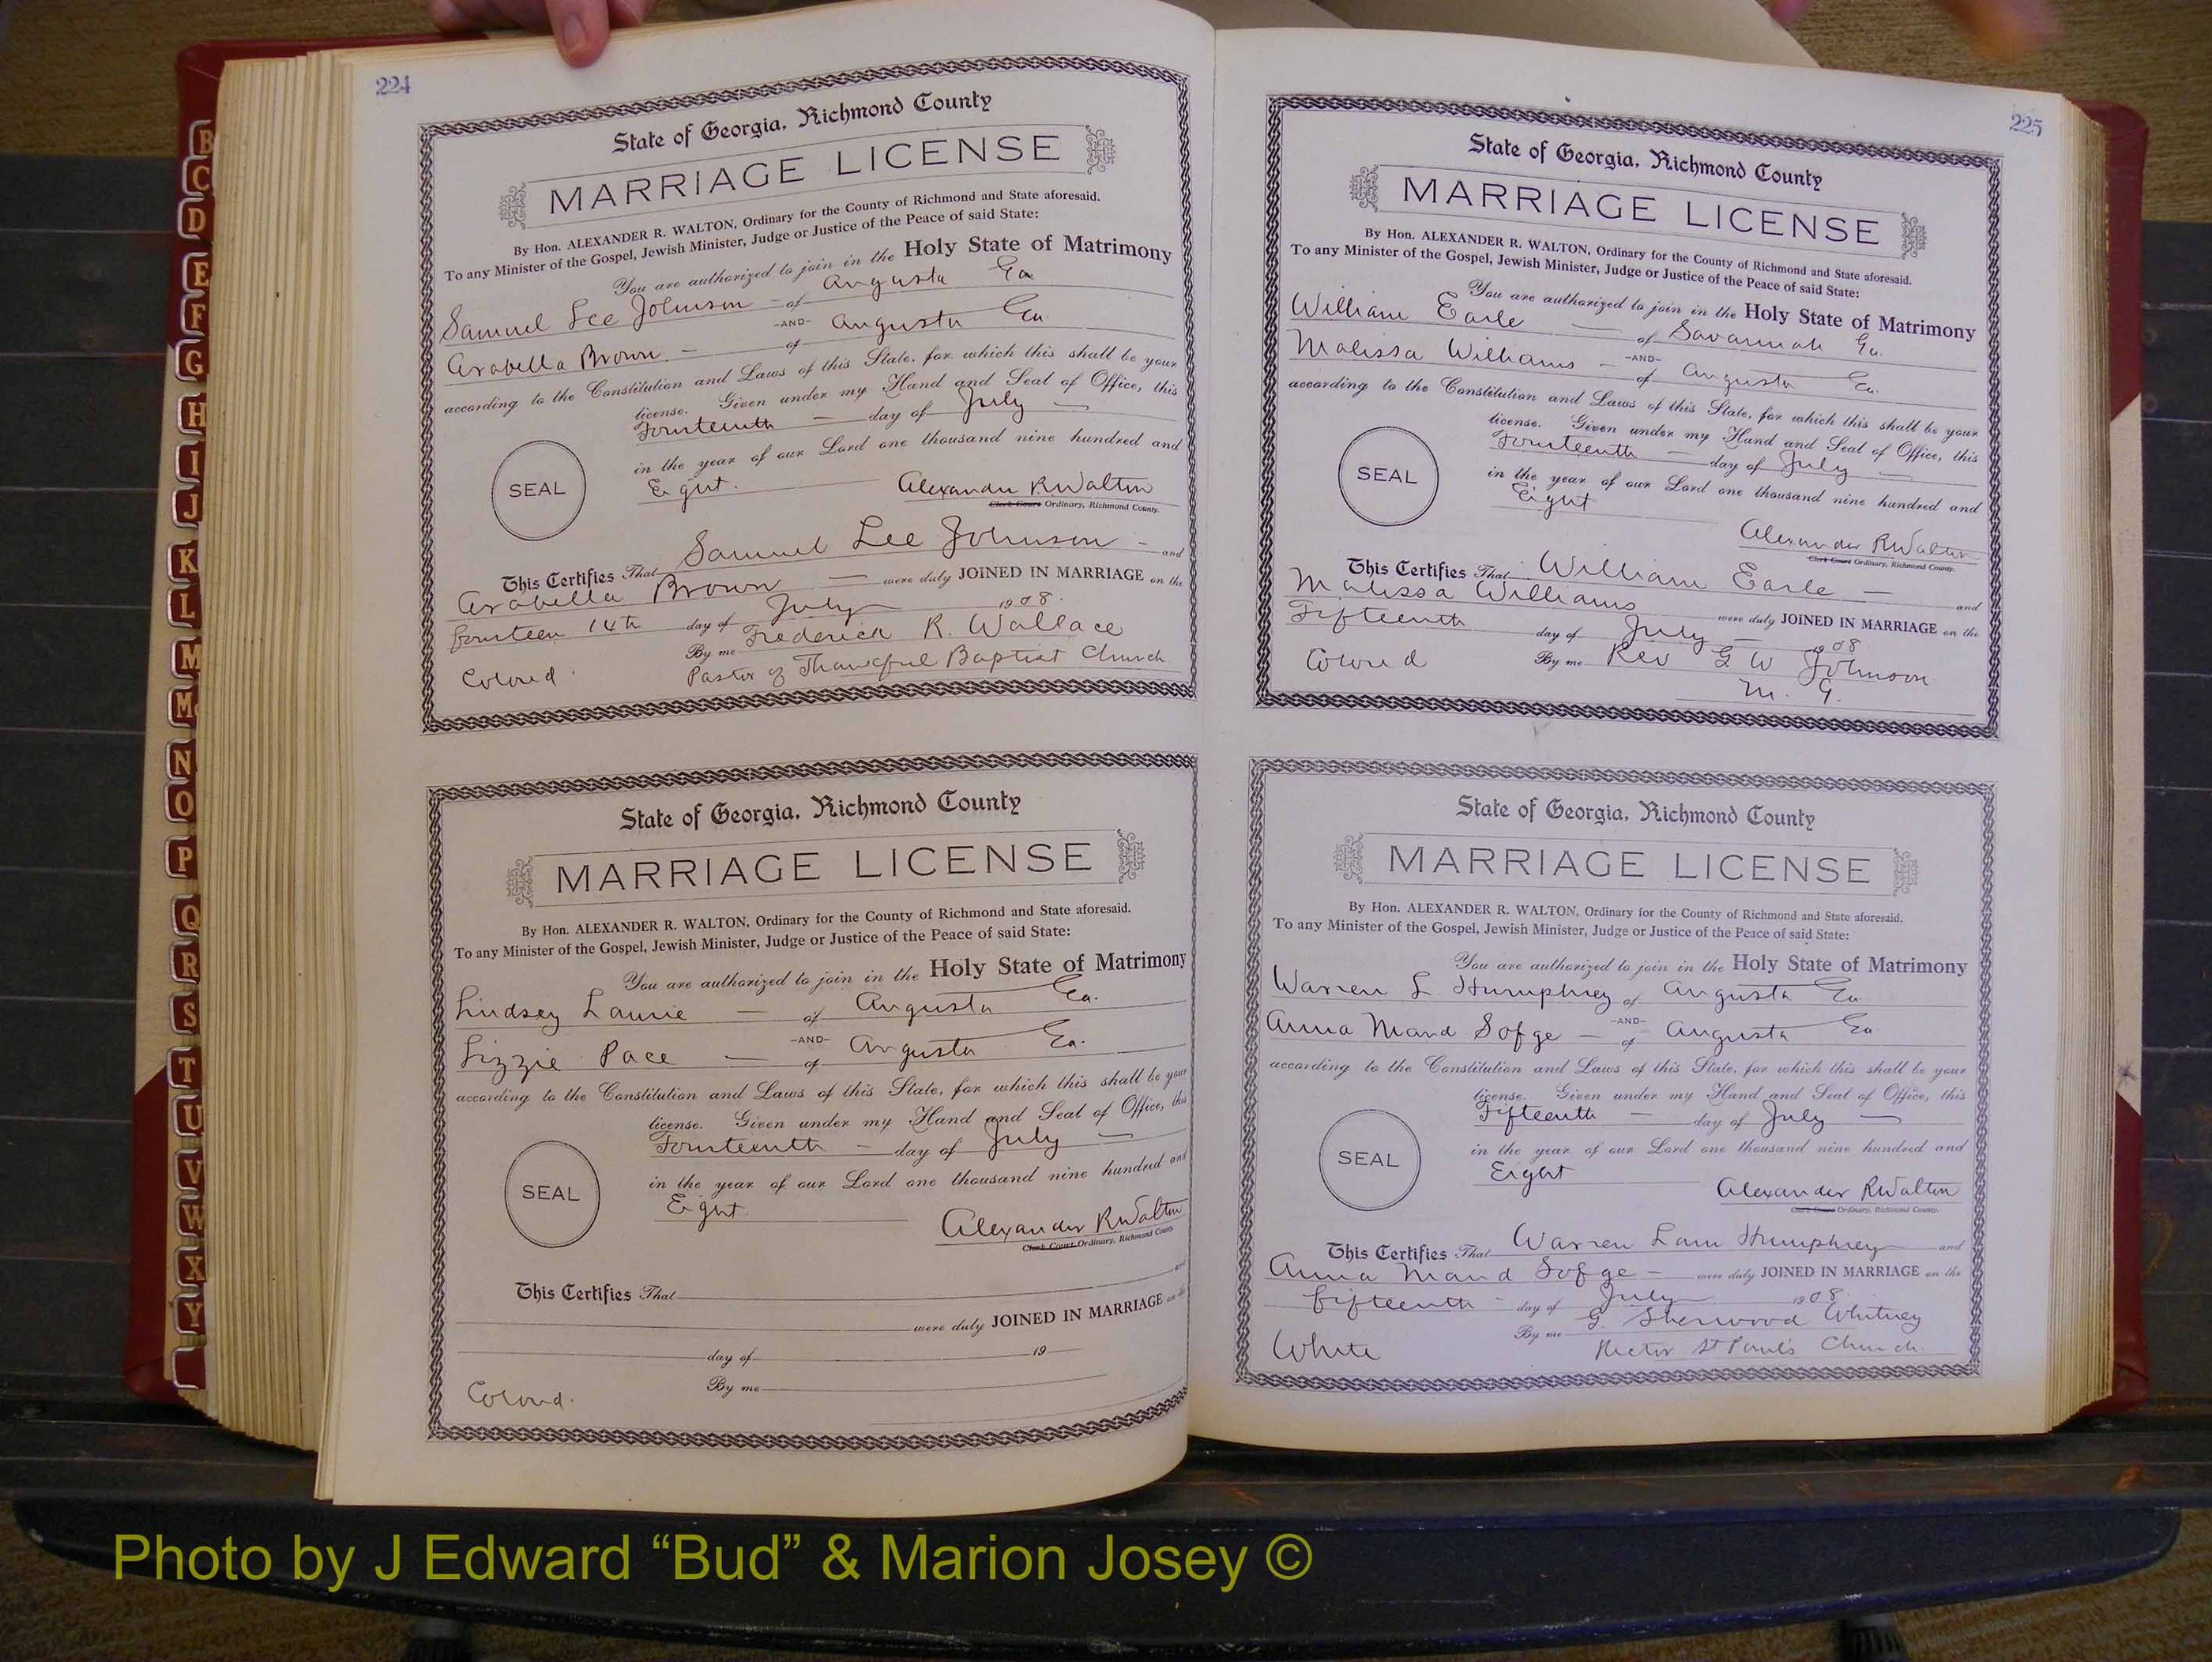 224
State of Georgia, Richmond County
MARRIAGE LICENSE
By Hon. ALEXANDER R. WALTON, Ordinary for the County of Richmond and State aforesaid.
To any Minister of the Gospel, Jewish Minister, Judge or Justice of the Peace of said State:
You are authorized to join in the Holy State of Matrimony
Samuel Lee Johnson - of Augusta Ga
-AND-
Arabella Brown - of Augusta Ga.
according to the Constitution and Laws of this State, for which this shall be your
license. Given under my Hand and Seal of Office, this
Fourteenth - day of July -
in the year of our Lord one thousand nine hundred and
Eight.
SEAL
Alexander R Walton
Clerk Court Ordinary, Richmond County.
This Certifies That Samuel Lee Johnson - and
Arabella Brown - were duly JOINED IN MARRIAGE on the
fourteen 14th day of July 1908.
By me Frederick R. Wallace
Colored. Pastor of Thankful Baptist Church
State of Georgia, Richmond County
MARRIAGE LICENSE
By Hon. ALEXANDER R. WALTON, Ordinary for the County of Richmond and State aforesaid.
To any Minister of the Gospel, Jewish Minister, Judge or Justice of the Peace of said State:
You are authorized to join in the Holy State of Matrimony
Lindsey Laurie - of Augusta Ga.
-AND-
Lizzie Pace - of Augusta Ga.
according to the Constitution and Laws of this State, for which this shall be your
license. Given under my Hand and Seal of Office, this
Fourteenth - day of July -
in the year of our Lord one thousand nine hundred and
Eight.
SEAL
Alexander R Walton
Clerk Court Ordinary, Richmond County
This Certifies That and
were duly JOINED IN MARRIAGE on the
day of 19
By me
Colored.
225
State of Georgia, Richmond County
MARRIAGE LICENSE
By Hon. ALEXANDER R. WALTON, Ordinary for the County of Richmond and State aforesaid.
To any Minister of the Gospel, Jewish Minister, Judge or Justice of the Peace of said State:
You are authorized to join in the Holy State of Matrimony
William Earle - of Savannah Ga.
-AND-
Malissa Williams - of Augusta Ga.
according to the Constitution and Laws of this State, for which this shall be your
license. Given under my Hand and Seal of Office, this
Fourteenth - day of July -
in the year of our Lord one thousand nine hundred and
Eight
SEAL
Alexander R Walton
Clerk Court Ordinary, Richmond County.
This Certifies That William Earle - and
Malissa Williams were duly JOINED IN MARRIAGE on the
Fifteenth day of July - 1908
Colored By me Rev G W Johnson
M. G.
State of Georgia, Richmond County
MARRIAGE LICENSE
By Hon. ALEXANDER R. WALTON, Ordinary for the County of Richmond and State aforesaid.
To any Minister of the Gospel, Jewish Minister, Judge or Justice of the Peace of said State:
You are authorized to join in the Holy State of Matrimony
Warren L Humphrey of Augusta Ga.
-AND-
Anna Maud Sofge - of Augusta Ga
according to the Constitution and Laws of this State, for which this shall be your
license. Given under my Hand and Seal of Office, this
Fifteenth - day of July -
in the year of our Lord one thousand nine hundred and
Eight
SEAL
Alexander R Walton
Clerk Court Ordinary, Richmond County.
This Certifies That Warren Humphrey and
Anna Maud Sofge - were duly JOINED IN MARRIAGE on the
fifteenth - day of July 1908.
By me G. Sherwood Whitney
White Rector St Paul's Church.
B
C
D
E
F
G
H
I
J
K
L
M
Mc
N
O
P
Q
R
S
T
U
V
W
X
Y
Photo by J Edward “Bud” & Marion Josey ©